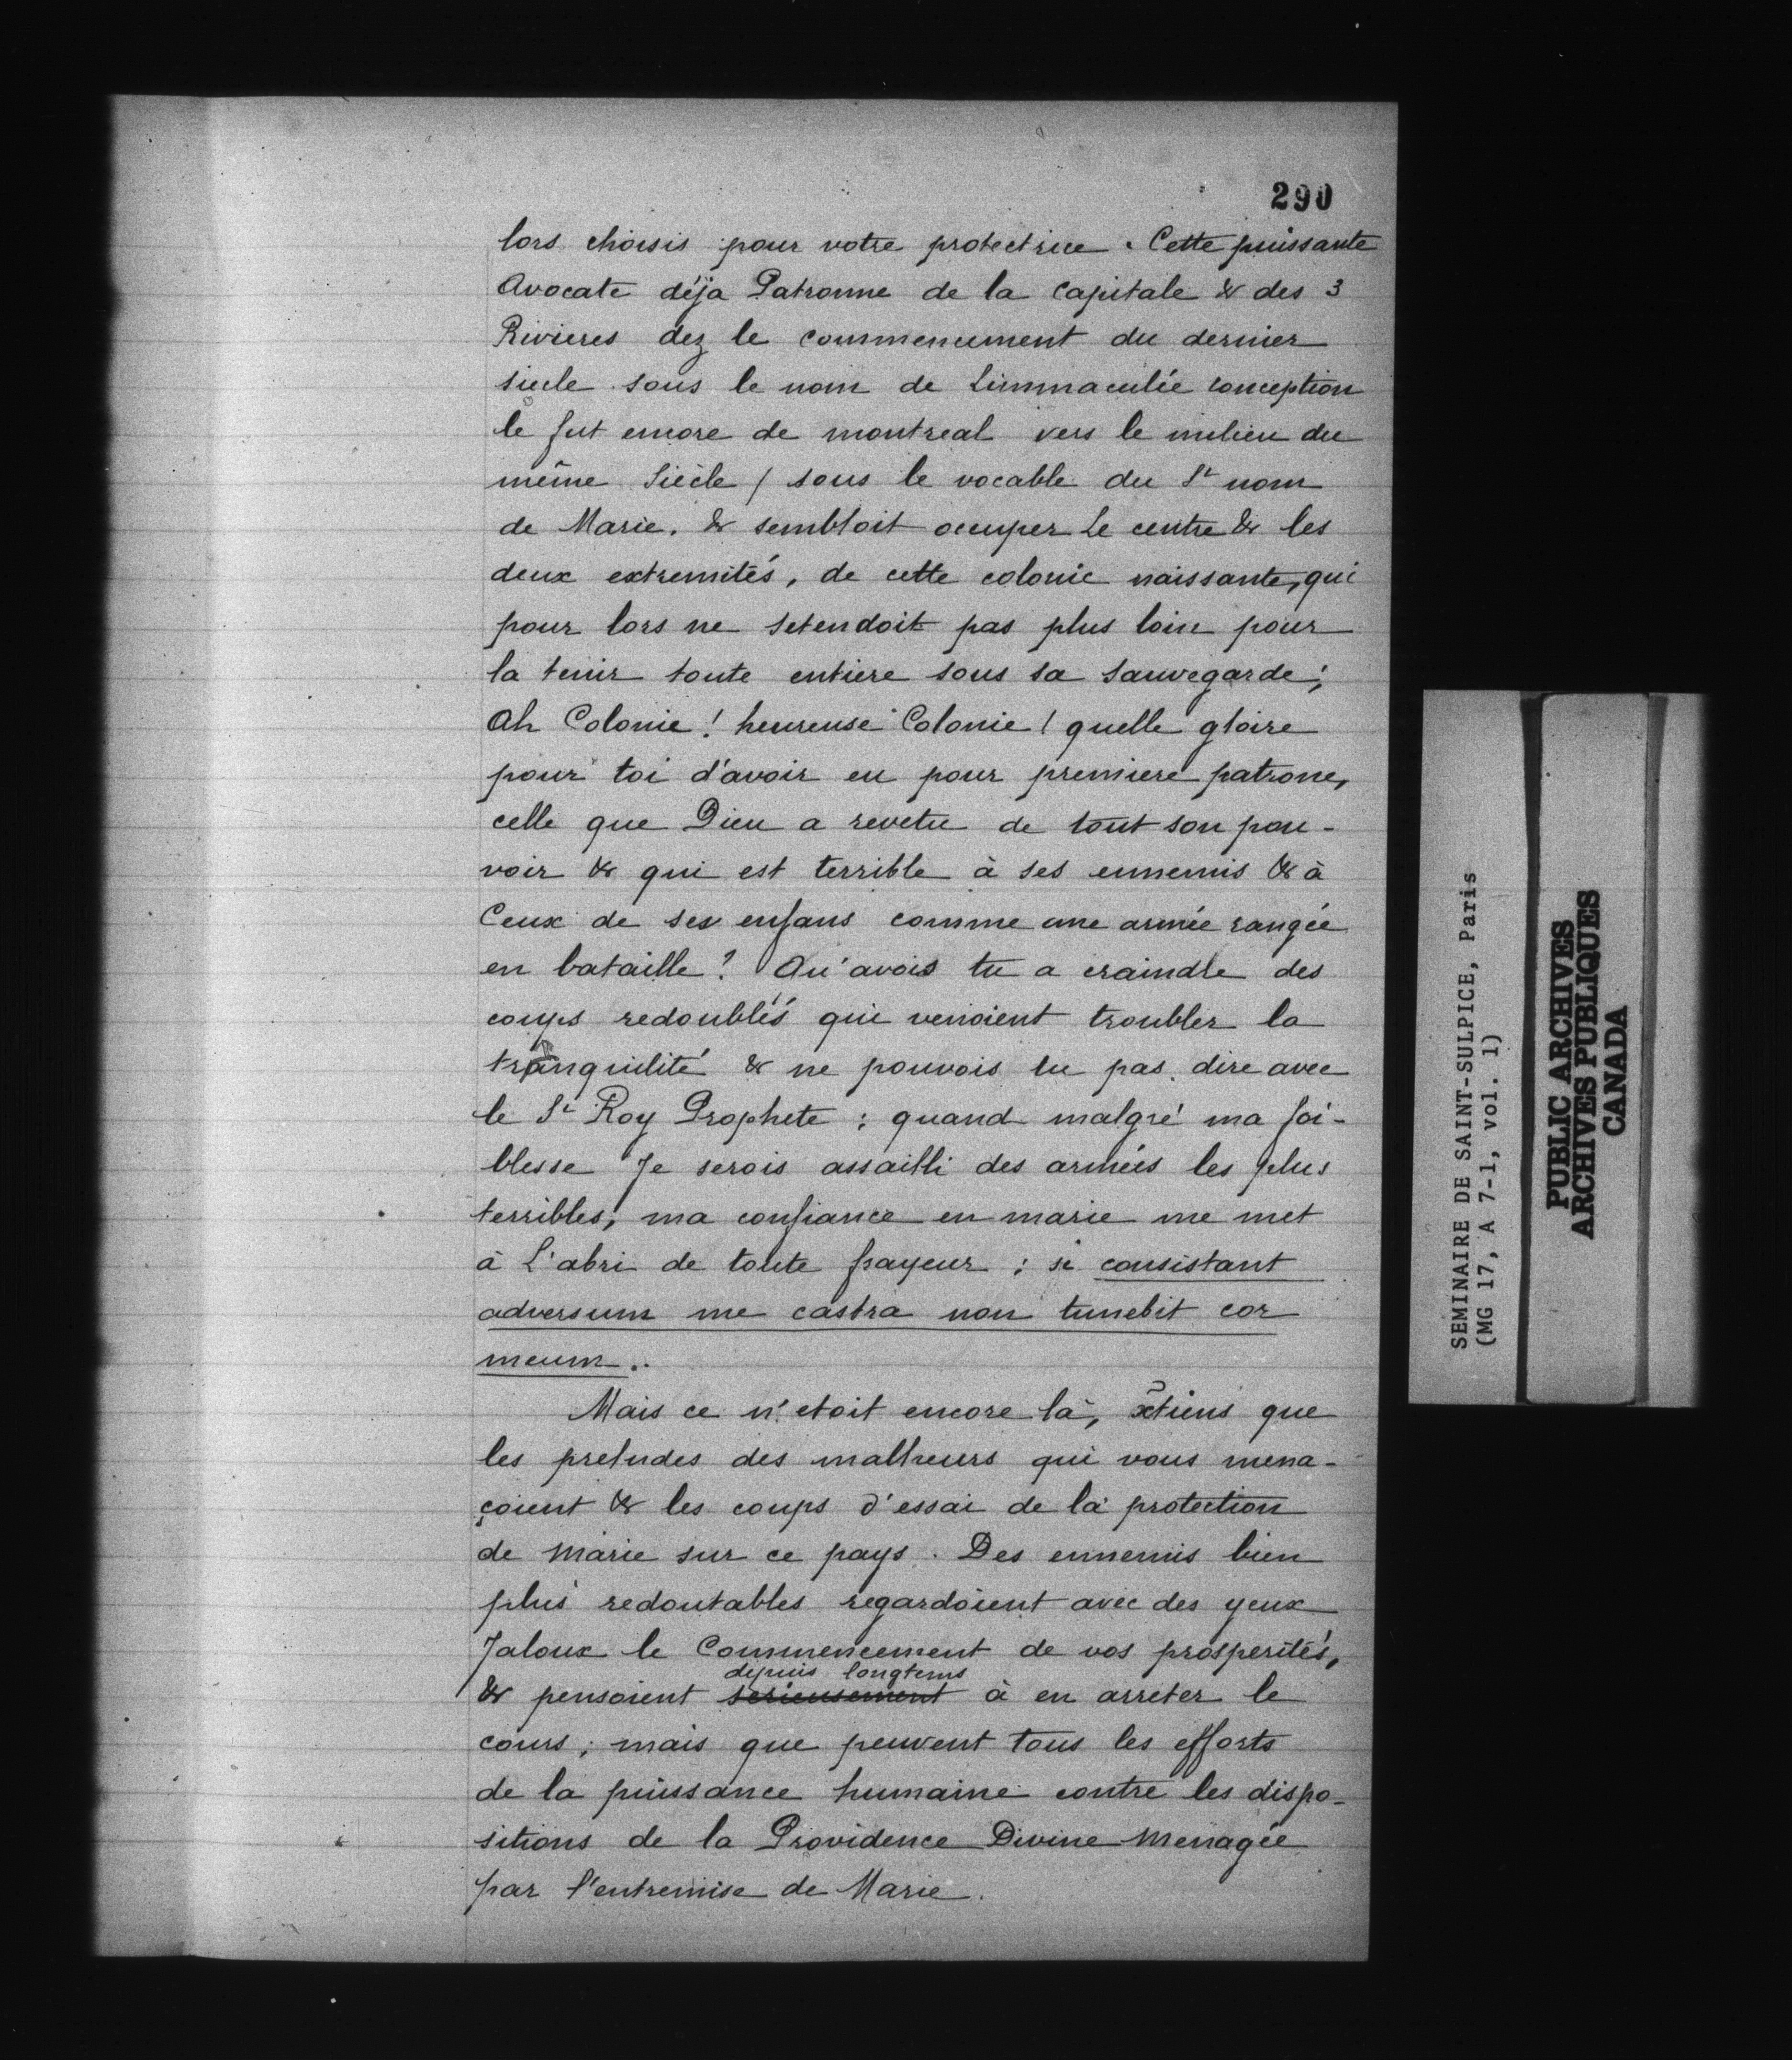 290
lors choisis pour votre protectrice. Cette puissante
Avocate déja Patronne de la Capitale & des 3
Rivieres dez le commencement du dernier
siecle sous le nom de Limmaculée conception
le fut encore de montreal vers le milieu du
même Siècle / sous le vocable du St nom
de Marie. & sembloit occuper Le centre & les
deux extremités, de cette colonie naissante, qui
pour lors ne Setendoit pas plus loin pour
la tenir toute entiere sous sa Sauvegarde;
Ah Colonie! heureuse Colonie! quelle gloire
pour toi d'avoir eu pour premiere patrone,
celle que Dieu a revetu de tout son pou-
voir & qui est terrible à ses ennemis & à
Ceux de ses enfans comme une armée rangée
en bataille? Qu'avois tu a craindre des
coups redoublés qui venoient troubler la
tranquilité & ne pouvois tu pas dire avec
le St Roy Prophete : quand malgré ma foi-
blesse Je serois assailli des armées les plus
terribles, ma confiance en marie me met
à L'abri de toute frayeur : si consistant
adversum me castra non timebit cor
meum..
Mais ce n'etoit encore là, xtiens que
les preludes des malheurs qui vous mena-
çoient & les coups d'essai de la protection
de Marie sur ce pays. Des ennemis bien
plus redoutables regardoient avec des yeux
Jaloux le Commencement de vos prosperités,
depuis longtems
& pensoient serieusement à en arreter le
cours; mais que peuvent tous les efforts
de la puissance humaine contre les dispo-
sitions de la Providence Divine Menagée
par l'entremise de Marie.
SEMINAIRE DE SAINT-SULPICE, Paris
(MG 17, A 7-1, vol. 1)
PUBLIC ARCHIVES
ARCHIVES PUBLIQUES
CANADA